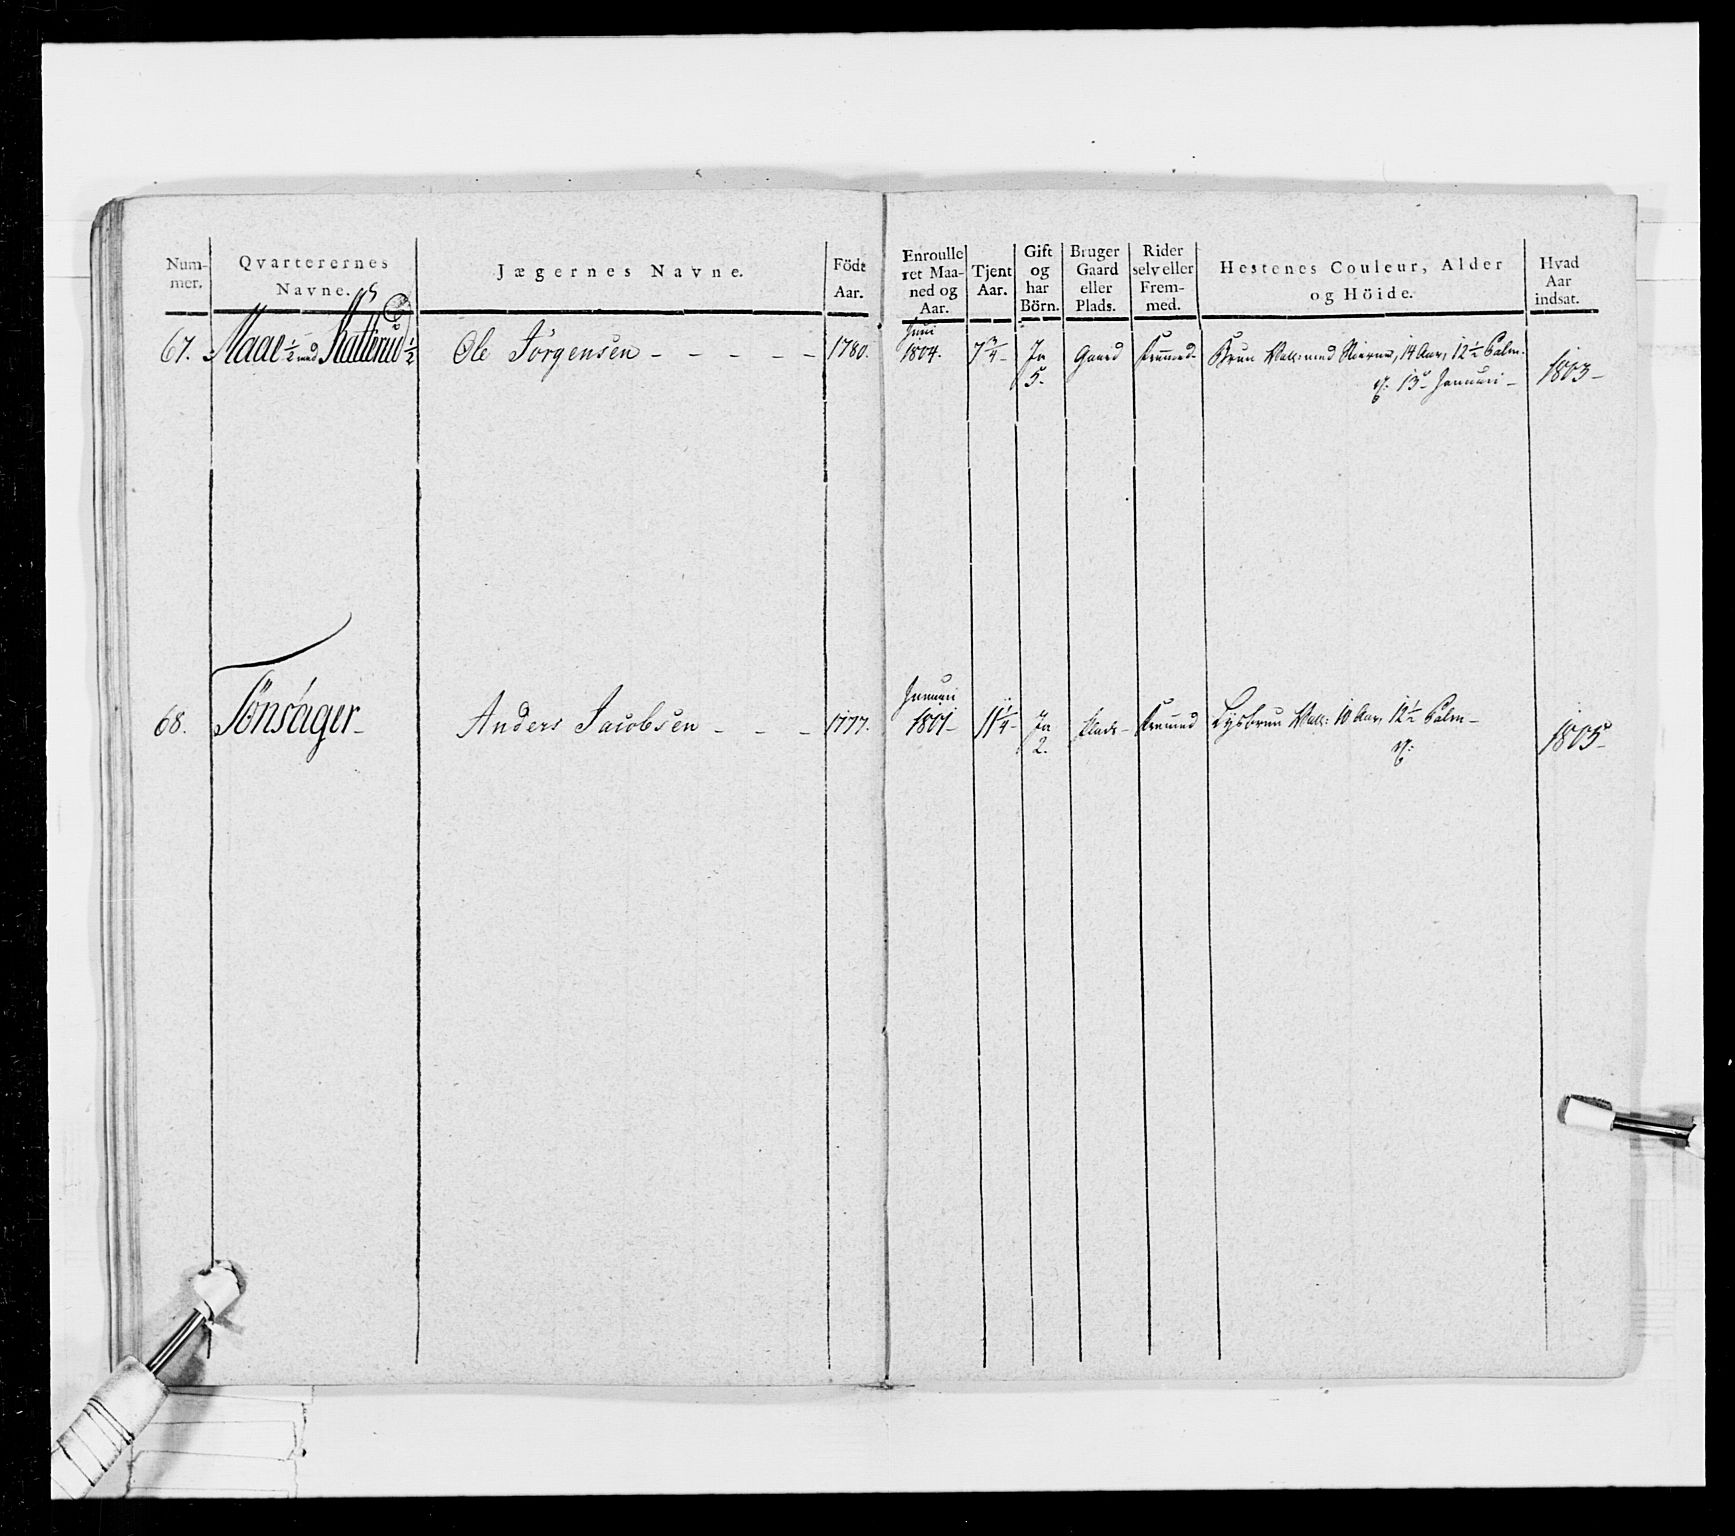 Num-
mer.
Qvarterernes
Navne.
Jægernes Navne.
Födt
Aar.
Enroulle
ret Maa-
ned og
Aar.
Tjent
Aar.
Gift
og
har
Börn.
Bruger
Gaard
eller
Plads.
Rider
selv eller
Frem-
med.
Hestenes Couleur, Alder
og Höide.
Hvad
Aar
indsat.
67. Maal ½ med Katterud ½ Ole Jörgensen - - - - - 1780. Juni
1804. 7 ¾ - Ja
5. Gaard Fremmed - Brun Vall: med Stierne, 14 Aar, 12 ½ Palm.
13 Januari - 1803 -
68. Tönsager - Anders Jacobsen - - - 1777. Januari
1801 - 11 ¼ - Ja
2. Plads - Fremmed Lysbrun Vall: 10 Aar, 12 ½ Palm -
1805 -